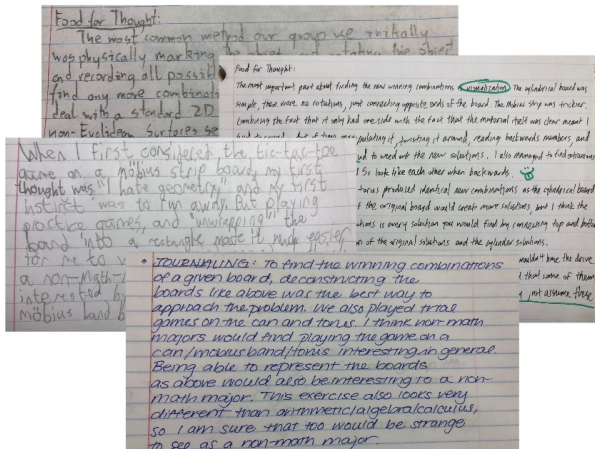 Food for Thought:
The most common method our group use initially
was physically marking
and recording all possib
find any more combinati
deal with a standard 2D
non-Euclidean surfaces se
Food for Thought:
The most important part about finding the new winning combinations is visualization. The cylindrical board was
simple, there were no rotations, just connecting opposite ends of the board. The Möbius strip was trickier.
Combining the fact that it only had one side with the fact that the material itself was clear meant I
pulating it, twisting it around, reading backwards numbers, and
to weed out the new solutions. I also managed to find
So look like each other when backwards.
torus produced identical new combinations as the cylindrical board
f the original board would create more solutions, but I think the
utions is every solution you would find by connecting top and bottom
n of the original solutions and the cylinder solutions.
wouldn't have the drive
that some of them
not assume these
When I first considered the tic-tac-toe
game on a möbius strip board, my first
thought was, "I hate geometry," and my first
instinct was to run away. But playing
practice games, and "unwrapping" the
board into a rectangle made it much easier
for me to v
a non-math-
interested b
möbius band b
• JOURNALING: To find the winning combinations
of a given board, deconstructing the
boards like above was the best way to
approach the problem. We also played trial
games on the can and torus. I think non-math
majors would find playing the game on a
can/möbius band/torus interesting in general.
Being able to represent the boards
as above would also be interesting to a non-
math major. This exercise also looks very
different than arithmetic/algebra/calculus,
so I am sure that too would be strange
to see as a non-math major.